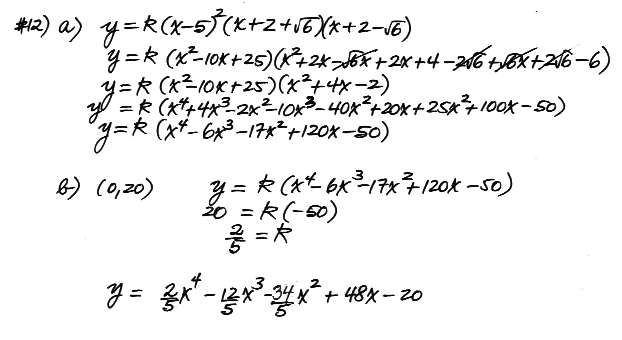 #12) a) y = k (x-5)²(x+2+√6)(x+2-√6)
y = k (x²-10x+25)(x²+2x-√6x+2x+4-2√6+√6x+2√6-6)
y = k (x²-10x+25)(x²+4x-2)
y = k (x⁴+4x³-2x²-10x³-40x²+20x+25x²+100x-50)
y = k (x⁴-6x³-17x²+120x-50)
b) (0,20) y = k (x⁴-6x³-17x²+120x-50)
20 = k (-50)
2/5 = k
y = 2/5x⁴ - 12/5x³ - 34/5x² + 48x - 20